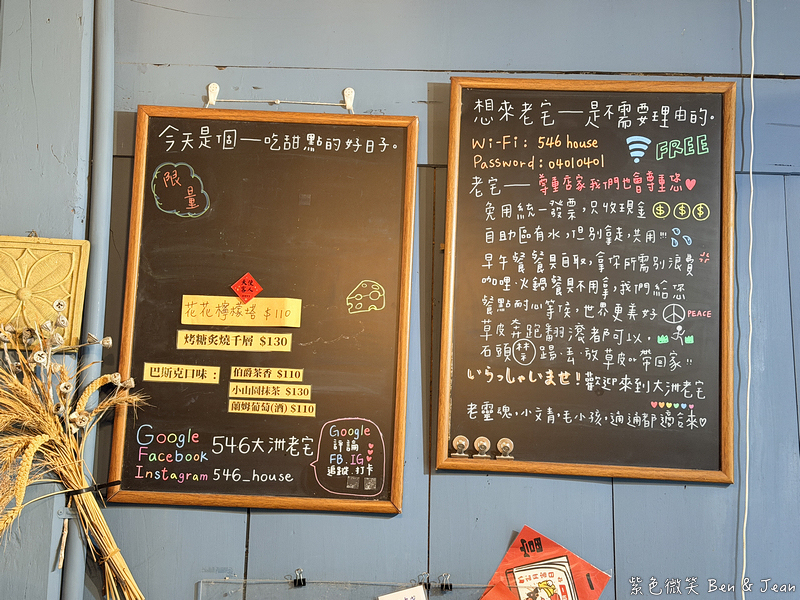 今天是個一吃甜點的好日子。
限量
花花檸檬塔 $110
烤糖炙燒千層 $130
巴斯克口味：
伯爵茶香 $110
小山園抹茶 $130
蘭姆葡萄(酒) $110
Google
Facebook
Instagram
546大洲老宅
546_house
Google
評論
FB.IG
追蹤.打卡
想來老宅一是不需要理由的。
Wi-Fi： 546 house
Password：04010401
FREE
老宅一 尊重店家我們也會尊重您
免用統一發票，只收現金 $ $ $
自助區有水，但別拿走，共用!!!
早午餐餐具自取，拿你所需別浪費
咖哩.火鍋餐具不用拿，我們給您
餐點耐心等候，世界更美好 PEACE
草皮奔跑翻滾都可以，
石頭禁踢.丟.放草皮.帶回家!!
いらっしゃいませ！歡迎來到大洲老宅
老靈魂，小文青，毛小孩，通通都適合來♡
紫色微笑 Ben & Jean